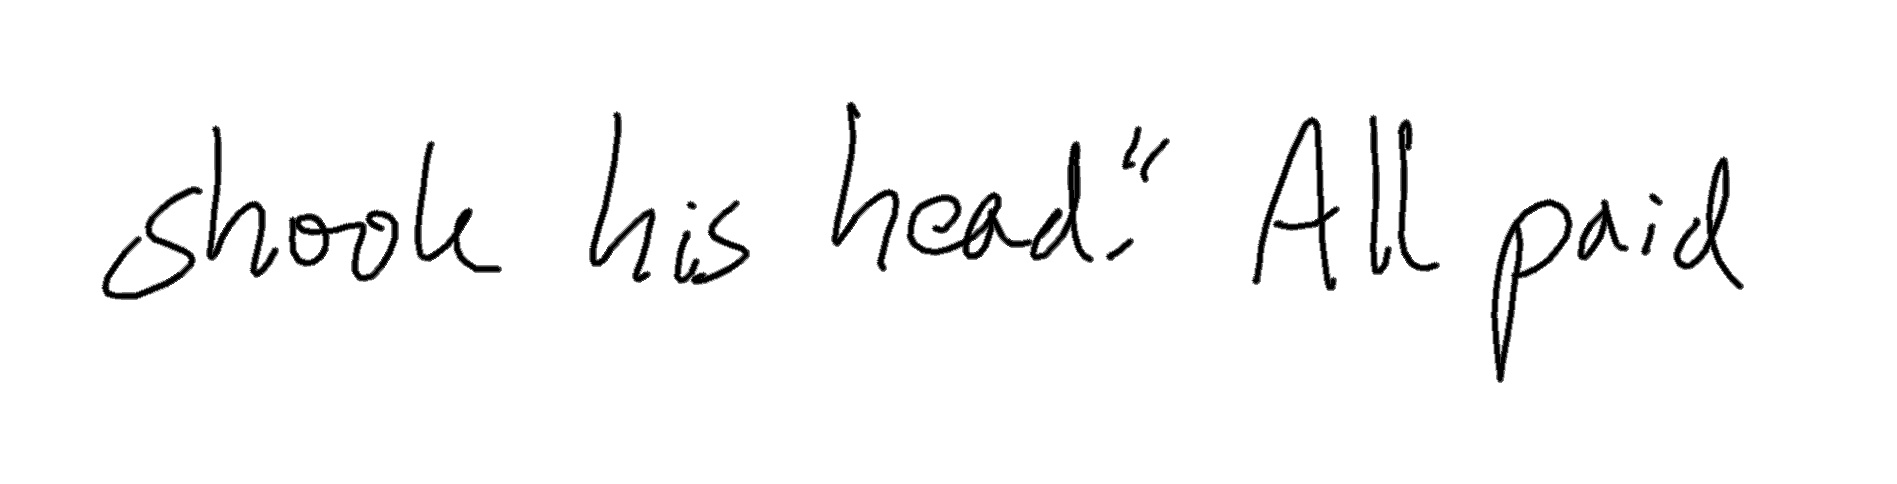 shook his head." All paid